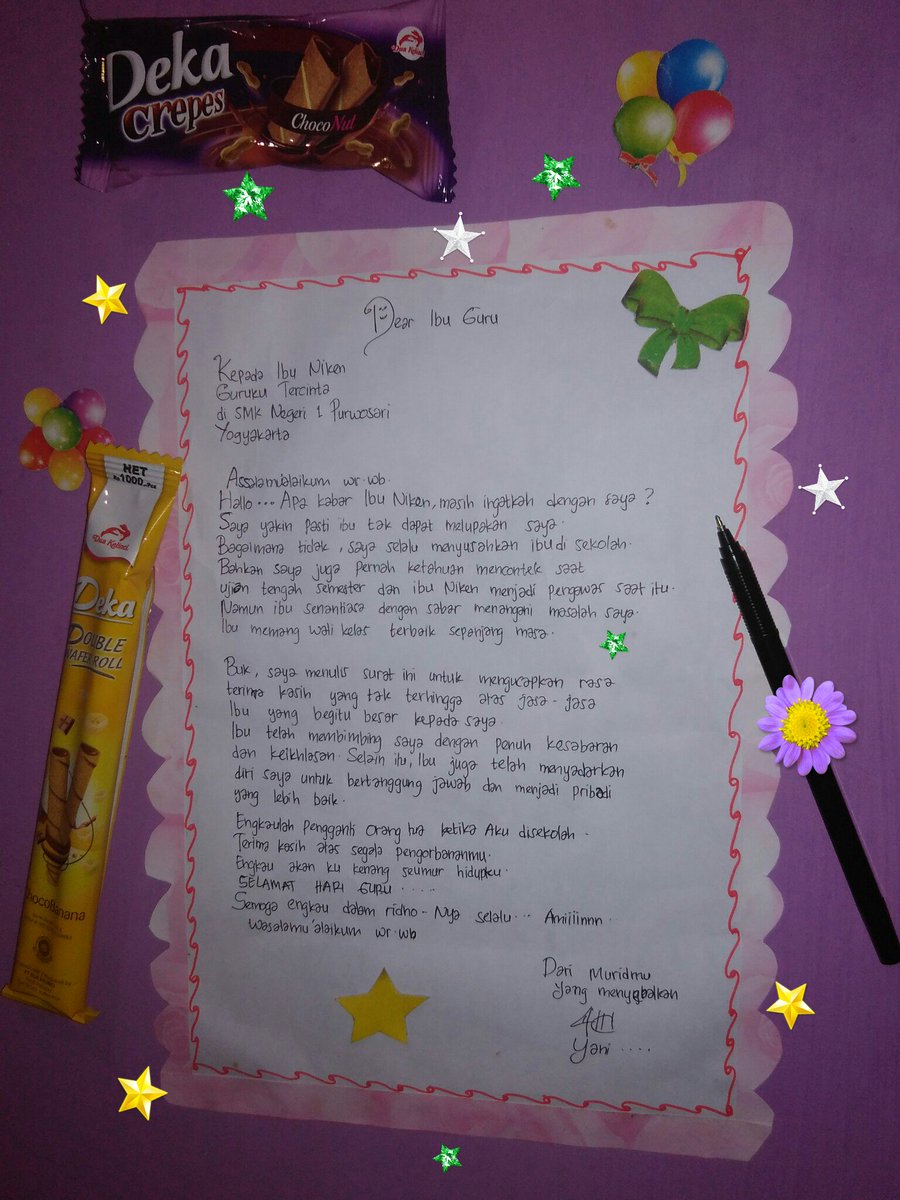 Deka
crepes
ChocoNut
Dua Kelinci
Dear Ibu Guru
Kepada Ibu Niken
Guruku Tercinta
di SMK Negeri 1 Purwosari
Yogyakarta
Assalamu'alaikum wr.wb.
Hallo... Apa kabar Ibu Niken, masih ingatkah dengan saya?
Saya yakin pasti ibu tak dapat melupakan saya.
Bagaimana tidak, saya selalu menyusahkan ibu di sekolah.
Bahkan saya juga pernah ketahuan mencontek saat
ujian tengah semester dan ibu Niken menjadi pengawas saat itu.
Namun ibu senantiasa dengan sabar menangani masalah saya.
Ibu memang wali kelas terbaik sepanjang masa.
Buk, saya menulis surat ini untuk mengucapkan rasa
terima kasih yang tak terhingga atas jasa-jasa
Ibu yang begitu besar kepada saya.
Ibu telah membimbing saya dengan penuh kesabaran
dan keikhlasan. Selain itu, Ibu juga telah menyadarkan
diri saya untuk bertanggung jawab dan menjadi pribadi
yang lebih baik.
Engkaulah Pengganti orang tua ketika Aku disekolah.
Terima kasih atas segala pengorbananmu.
Engkau akan ku kenang seumur hidupku.
SELAMAT HARI GURU .....
Semoga engkau dalam ridho-Nya selalu... Amiiiimnn.
Wasalamu'alaikum wr.wb
Dari Muridmu
yang menyebalkan
Yani ....
NET
Rp1000
Dua Kelinci
Deka
DOUBLE
WAFER ROLL
ChocoBanana